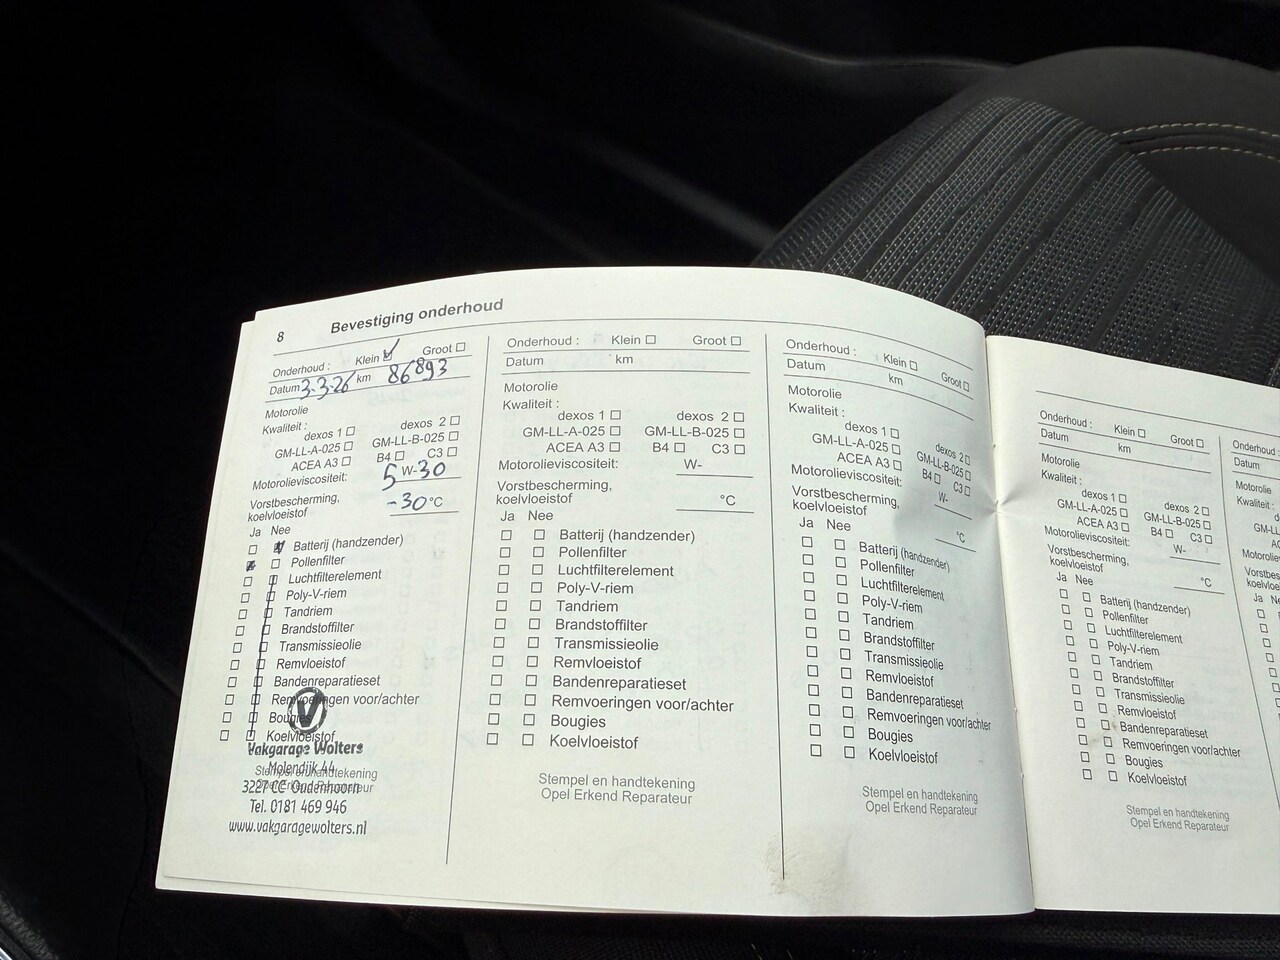 8 Bevestiging onderhoud
Onderhoud : Klein Groot
Datum 3-3-26 km 86893
Motorolie
Kwaliteit :
dexos 1 dexos 2
GM-LL-A-025 GM-LL-B-025
ACEA A3 B4 C3
Motorolieviscositeit: 5 W-30
Vorstbescherming,
koelvloeistof -30 °C
Ja Nee
Batterij (handzender)
Pollenfilter
Luchtfilterelement
Poly-V-riem
Tandriem
Brandstoffilter
Transmissieolie
Remvloeistof
Bandenreparatieset
Remvoeringen voor/achter
Bougies
Koelvloeistof
V
Vakgarage Wolters
Molendijk 44
Stempel en handtekening
3227 CE Oudenhoorn
Opel Erkend Reparateur
Tel. 0181 469 946
www.vakgaragewolters.nl
Onderhoud : Klein Groot
Datum km
Motorolie
Kwaliteit :
dexos 1 dexos 2
GM-LL-A-025 GM-LL-B-025
ACEA A3 B4 C3
Motorolieviscositeit: W-
Vorstbescherming,
koelvloeistof °C
Ja Nee
Batterij (handzender)
Pollenfilter
Luchtfilterelement
Poly-V-riem
Tandriem
Brandstoffilter
Transmissieolie
Remvloeistof
Bandenreparatieset
Remvoeringen voor/achter
Bougies
Koelvloeistof
Stempel en handtekening
Opel Erkend Reparateur
Onderhoud : Klein Groot
Datum km
Motorolie
Kwaliteit :
dexos 1 dexos 2
GM-LL-A-025 GM-LL-B-025
ACEA A3 B4 C3
Motorolieviscositeit: W-
Vorstbescherming,
koelvloeistof °C
Ja Nee
Batterij (handzender)
Pollenfilter
Luchtfilterelement
Poly-V-riem
Tandriem
Brandstoffilter
Transmissieolie
Remvloeistof
Bandenreparatieset
Remvoeringen voor/achter
Bougies
Koelvloeistof
Stempel en handtekening
Opel Erkend Reparateur
Onderhoud : Klein Groot
Datum km
Motorolie
Kwaliteit :
dexos 1 dexos 2
GM-LL-A-025 GM-LL-B-025
ACEA A3 B4 C3
Motorolieviscositeit: W-
Vorstbescherming,
koelvloeistof °C
Ja Nee
Batterij (handzender)
Pollenfilter
Luchtfilterelement
Poly-V-riem
Tandriem
Brandstoffilter
Transmissieolie
Remvloeistof
Bandenreparatieset
Remvoeringen voor/achter
Bougies
Koelvloeistof
Stempel en handtekening
Opel Erkend Reparateur
Onderhoud
Datum
Motorolie
Kwaliteit :
Ja